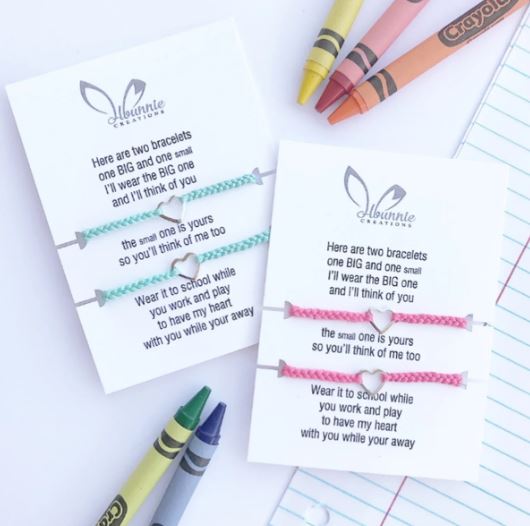 Hbunnie
CREATIONS
Here are two bracelets
one BIG and one small
I'll wear the BIG one
and I'll think of you
the small one is yours
so you'll think of me too
Wear it to school while
you work and play
to have my heart
with you while your away
Hbunnie
CREATIONS
Here are two bracelets
one BIG and one small
I'll wear the BIG one
and I'll think of you
the small one is yours
so you'll think of me too
Wear it to school while
you work and play
to have my heart
with you while your away
Crayola
Crayola